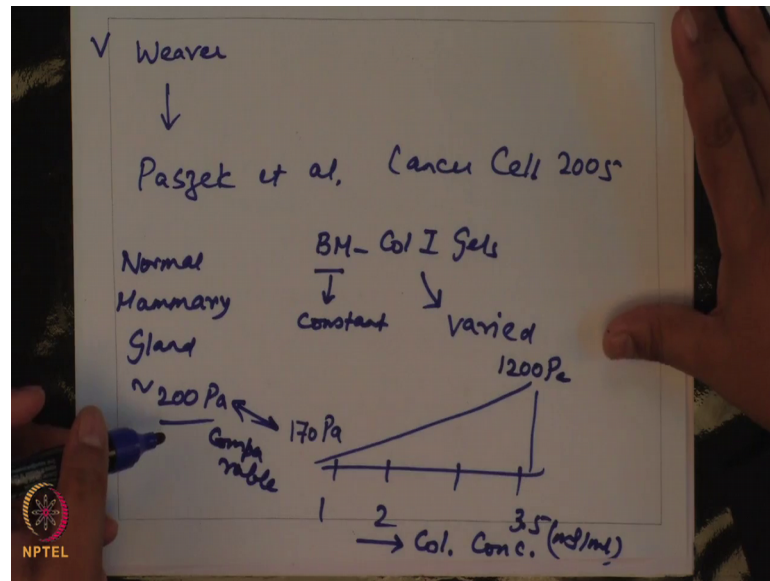 V Weaver
Paszek et al. Cancer Cell 2005
BM- Col I Gels
Constant
Varied
Normal
Mammary
Gland
~ 200 Pa
Compa
rable
170 Pa
1200 Pa
1 2 3.5 (mg/ml)
→ Col. Conc.
NPTEL